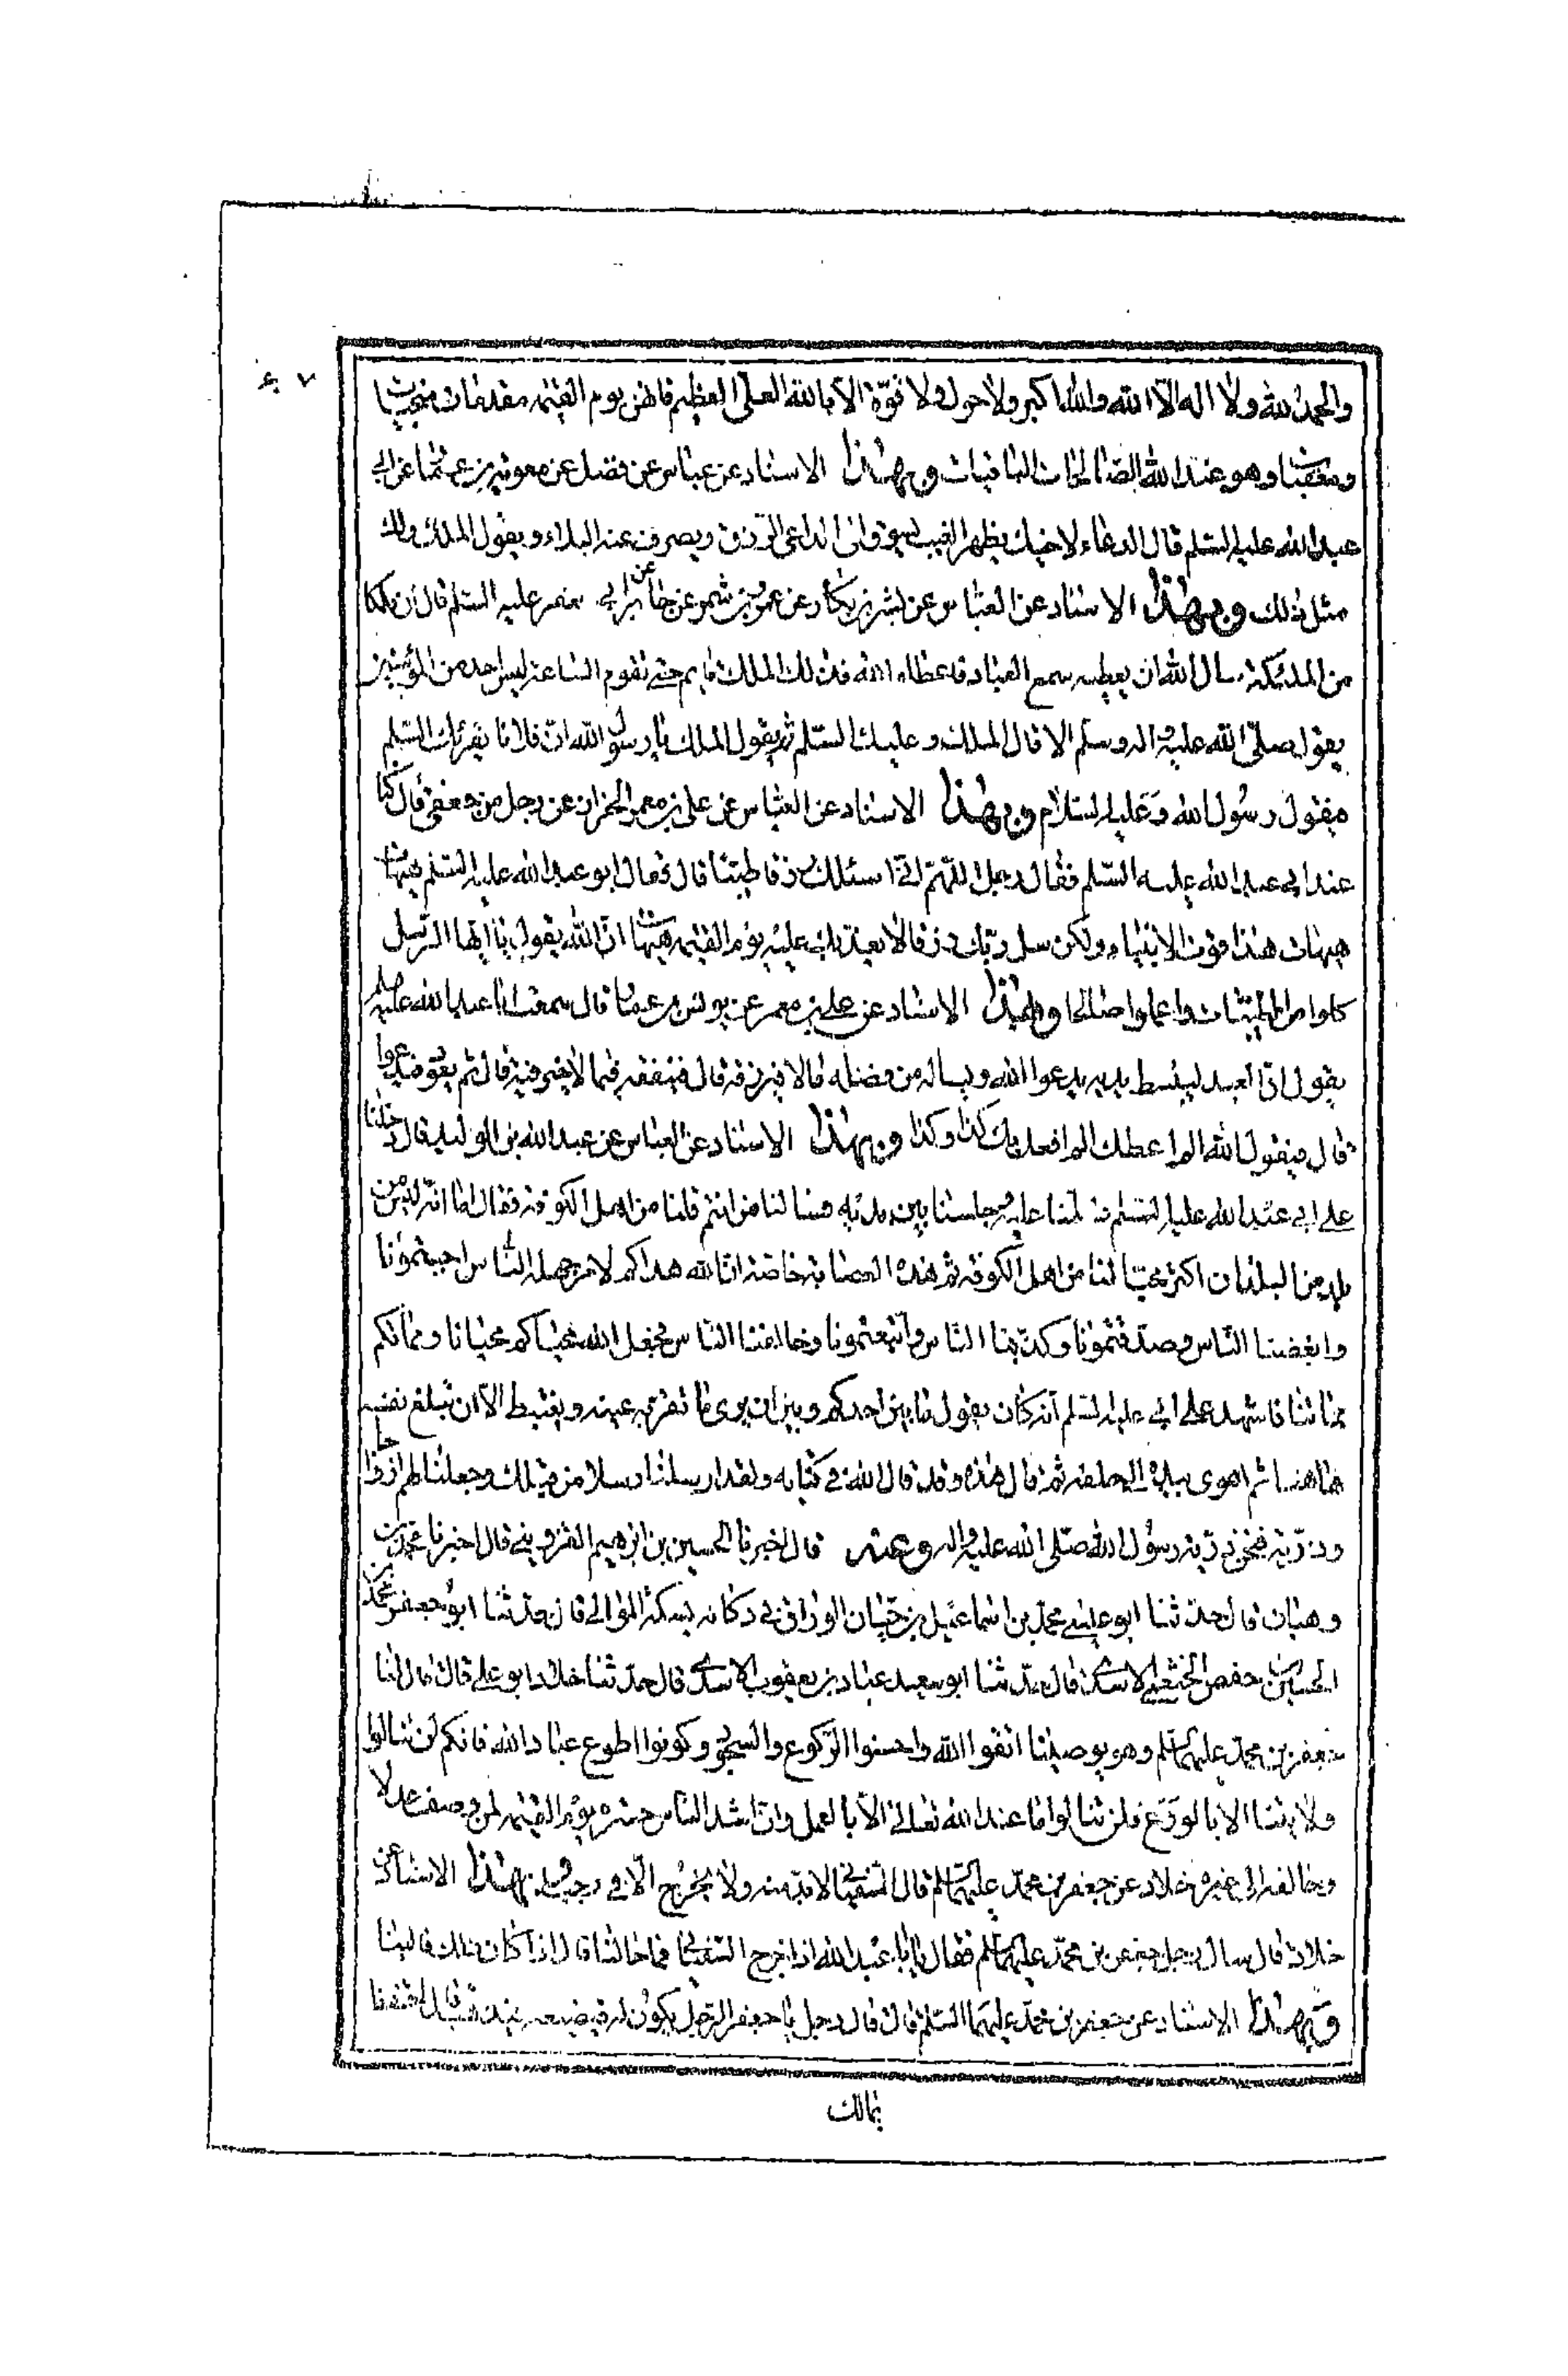 والحمد لله ولا اله الا الله والله اكبر ولا حول ولا قوة الا بالله العلى العظيم فانهن يوم القيمة مقدمات منجيات
ومعقبات وهو عند الله الصالحات الباقيات وبهذا الاسناد عن عباس عن فضل عن معوية بن عمار عن ابى
عبد الله عليه السلم قال الدعاء لاخيك بظهر الغيب يسوق الى الداعى الرزق ويصرف عنه البلاء ويقول الملك ولك
مثل ذلك وبهذا الاسناد عن العباس عن بشر بن بكار عن عمرو بن شمر عن جابر عن ابى جعفر عليه السلم قال ان ملكا
من الملئكة سال الله ان يعطيه سمع العباد فاعطاه الله فذلك الملك قايم حتى تقوم الساعة ليس احد من المؤمنين
يقول صلى الله عليه واله وسلم الا قال الملك وعليك السلم ثم يقول الملك يا رسول الله ان فلانا يقرئك السلم
فيقول رسول الله وعليه السلام وبهذا الاسناد عن العباس عن على بن معمر الخزان عن رجل من جعفى قال كنا
عند ابى عبد الله عليه السلم فقال رجل اللهم انى اسئلك رزقا طيبا قال فقال ابو عبد الله عليه السلم هيهات
هيهات هذا قوت الانبياء ولكن سل ربك رزقا لا يعذبك عليه يوم القيمة هيهات ان الله يقول يا ايها الرسل
كلوا من الطيبات واعملوا صالحا وبهذا الاسناد عن على بن معمر عن يونس بن عمار قال سمعت ابا عبد الله عليه السلم
يقول ان العبد ليبسط يديه يدعوا الله ويساله من فضله مالا فيرزقه قال فينفقه فيما لا خير فيه قال ثم يعود فيدعوا
قال فيقول الله الم اعطك الم افعل بك كذا وكذا وبهذا الاسناد عن العباس عن عبد الله بن الوليد قال دخلنا
على ابى عبد الله عليه السلم فسلمنا عليه وجلسنا بين يديه فسالنا من انتم قلنا من اهل الكوفة فقال اما انه ليس من
بلد من البلدان اكثر محبا لنا من اهل الكوفة ثم هذه العصابة خاصة ان الله هداكم لامر جهله الناس احببتمونا
وابغضنا الناس وصدقتمونا وكذبنا الناس واتبعتمونا وخالفنا الناس فجعل الله محياكم محيانا ومماتكم
مماتنا فاشهد على ابى عليه السلم انه كان يقول ما بين احدكم وبين ان يرى ما تقر به عينه ويغتبط الا ان تبلغ نفسه
هاهنا ثم اهوى بيده الى حلقه ثم قال هذه وقد قال الله فى كتابه ولقد ارسلنا رسلا من قبلك وجعلنا لهم ازواجا
وذرية فنحن ذرية رسول الله صلى الله عليه واله وعنه قال اخبرنا الحسين بن ابرهيم القزوينى قال اخبرنا محمد بن
وهبان قال حدثنا ابو عيسى محمد بن اسماعيل بن حيان الوراق فى دكانه بسكة الموالى قال حدثنا ابو جعفر محمد بن
الحسين بن حفص الخثعمى الاسدى قال حدثنا ابو سعيد عباد بن يعقوب الاسدى قال حدثنا خلاد ابو على قال قال لنا
جعفر بن محمد عليهما السلم وهو يوصينا اتقوا الله واحسنوا الركوع والسجود وكونوا اطوع عباد الله فانكم لن تنالوا
ولايتنا الا بالورع فلن تنالوا ما عند الله تعالى الا بالعمل وان اشد الناس حسرة يوم القيمة لمن وصف عدلا
وخالفه الى غيره خلاد عن جعفر بن محمد عليهما السلم قال السفيانى لا بد منه ولا يخرج الا فى رجب وبهذا الاسناد عن
خلاد قال سال رجل جعفر بن محمد عليهما السلم فقال يا ابا عبد الله اذا خرج السفيانى فما حالنا قال اذا كان ذلك فالينا
وبهذا الاسناد عن جعفر بن محمد عليهما السلم قال قال رجل يا جعفر الرجل يكون له
بمالك